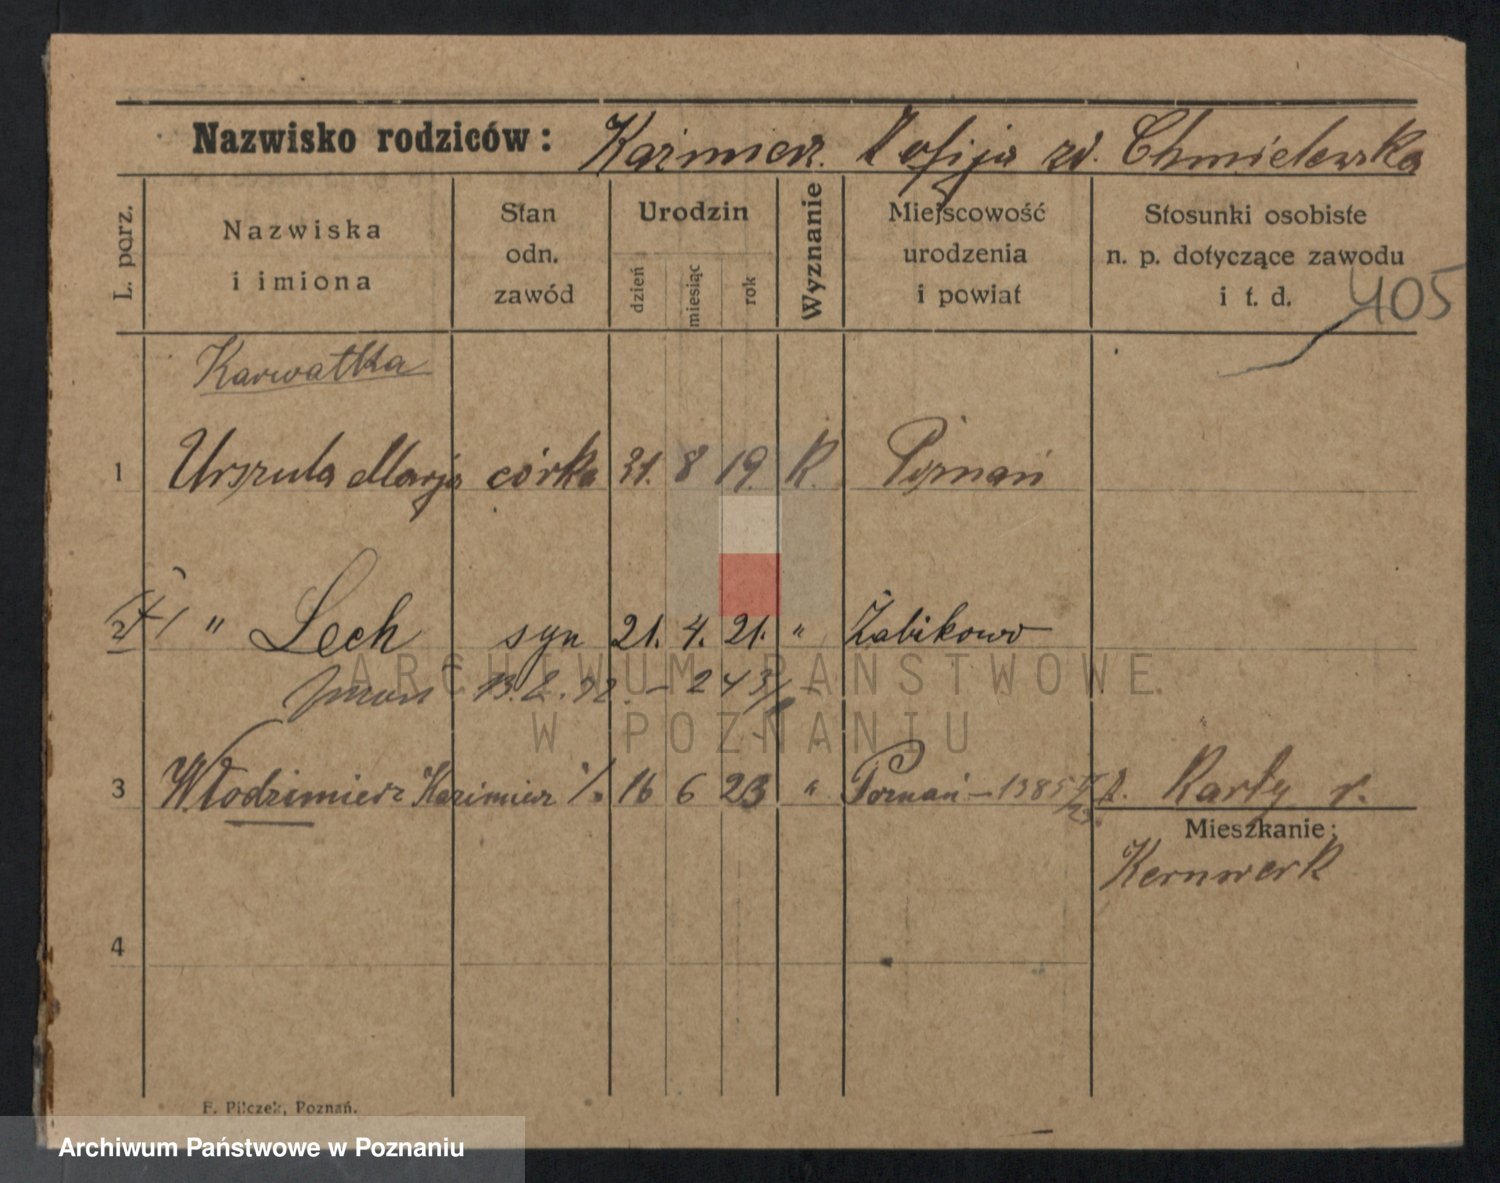 Nazwisko rodziców: Kazimierz. Zofija zd. Chmielewska
L. porz.
Nazwiska i imiona
Stan odn. zawód
Urodzin
dzień miesiąc rok
Wyznanie
Miejscowość urodzenia i powiat
Stosunki osobiste n. p. dotyczące zawodu i t. d.
405
Karwatka
1 Urszula Marja córka 31. 8 19. K. Poznań
2 " Lech syn 21. 4. 21. " Żabikowo
3 Włodzimierz Kazimierz 16 6 23 " Poznań – 1385 Karty r.
Mieszkanie:
Kernwerk
4
F. Pilczek, Poznań.
ARCHIWUM PAŃSTWOWE
W POZNANIU
Archiwum Państwowe w Poznaniu